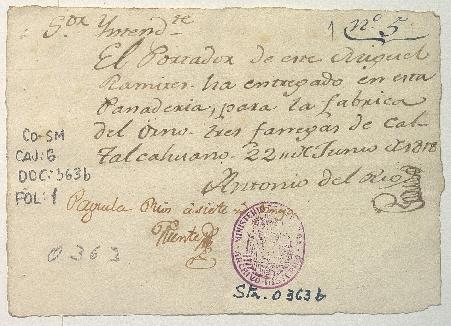 Sor Yntendte
1 no. 5.
El Portador de este Miguel
Ramires ha entregado en esta
Panaderia, para la fabrica
del vino tres fanegas de cal
Talcahuano 22 Junio 1818
Antonio del Rio
CO-SM
CAJ: 6
DOC: 363b
FOL: 1
0363
MINISTERIO
SM. 0363b